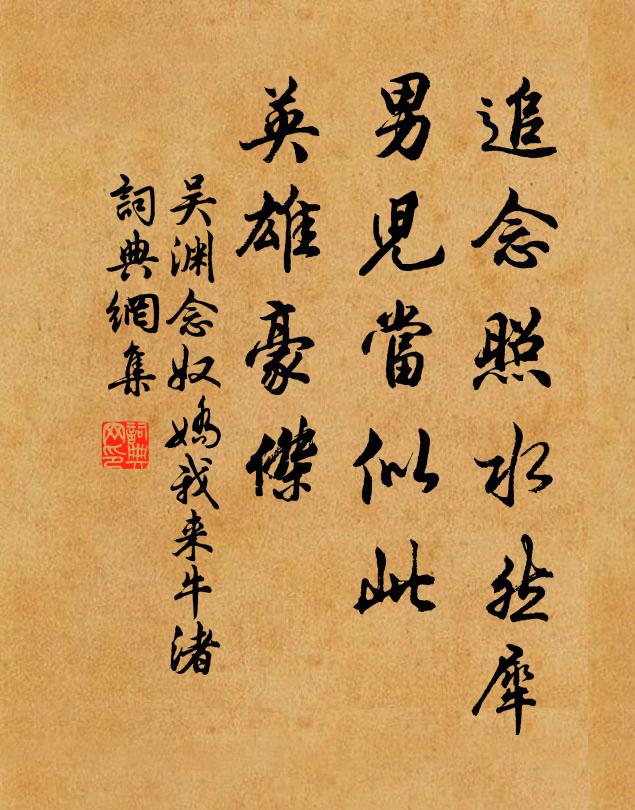 追念照水然犀
男兒當似此
英雄豪傑
吴渊念奴嬌我来牛渚
詞典網集
詞典網印